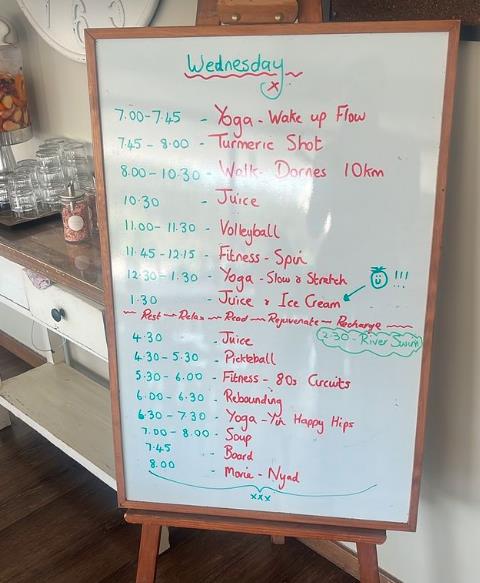 163
Wednesday
x
7.00-7.45 - Yoga - Wake up Flow
7.45 - 8.00 - Turmeric Shot
8.00 - 10.30 - Walk - Dornes 10km
10.30 - Juice
11.00 - 11.30 - Volleyball
11.45 - 12.15 - Fitness - Spin
12.30 - 1.30 - Yoga - Slow & Stretch !!!
1.30 - Juice & Ice Cream
Rest - Relax - Read - Rejuvenate - Recharge
2.30 - River Swim
4.30 - Juice
4.30 - 5.30 - Pickleball
5.30 - 6.00 - Fitness - 80s Circuits
6.00 - 6.30 - Rebounding
6.30 - 7.30 - Yoga - Yin Happy Hips
7.00 - 8.00 - Soup
7.45 - Board
8.00 - Movie - Nyad
xxx